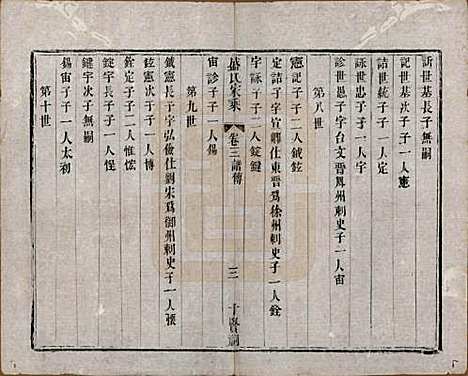 訢世基長子無嗣
記世基次子子一人憲
詰世統子子一人定
詠世忠子子一人宇
診世愚子字台文晉鳳州刺史子一人宙
第八世
憲記子子二人鉞鉉
定詰子字宣卿仕東晉爲徐州刺史子一人銓
宇詠子子二人錠鍵
宙診子子一人錫
氏家乘
卷三譜傳
三
十賢祠
第九世
鉞憲長子字弘儉仕劉宋爲御州刺史子一人懷
鉉憲次子子一人愽
銓定子子二人惟恡
錠宇長子子一人悝
鍵宇次子無嗣
錫宙子子一人太利
第十世